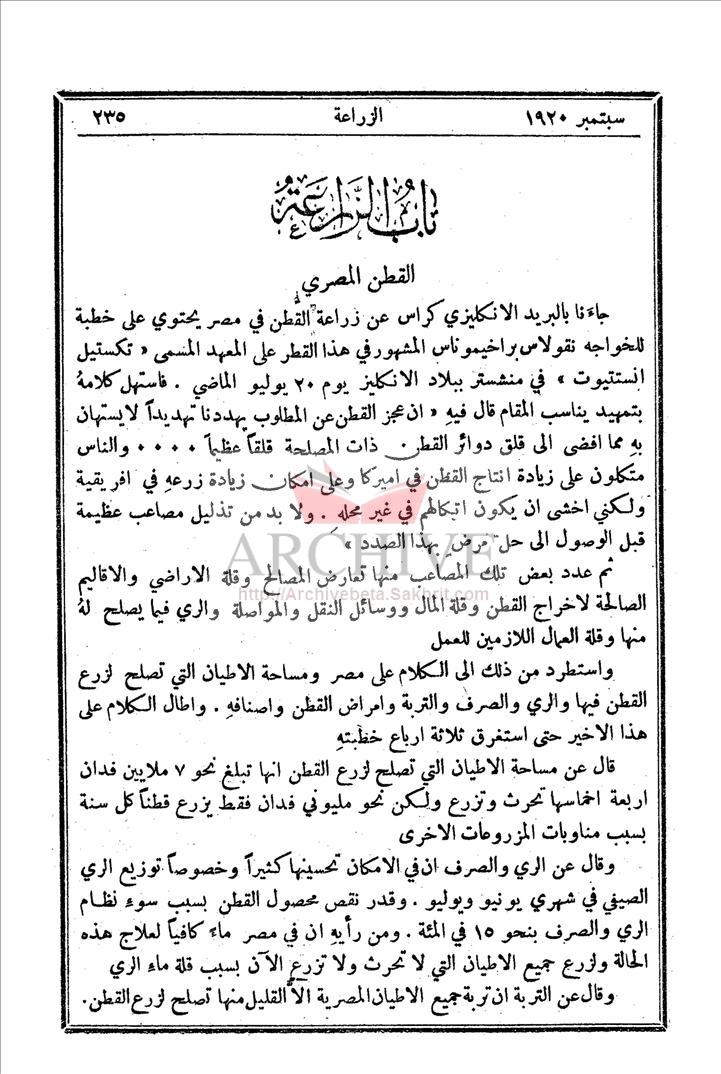 سبتمبر ١٩٢٠ الزراعة ٢٣٥
باب الزراعة
القطن المصري
جاءَنا بالبريد الانكليزي كراس عن زراعة القطن في مصر يحتوي على خطبة
للخواجه نقولاس براخيموناس المشهور في هذا القطر على المعهد المسمى « تكستيل
انستتيوت » في منشستر ببلاد الانكليز يوم ٢٠ يوليو الماضي . فاستهل كلامهُ
بتمهيد يناسب المقام قال فيهِ « ان عجز القطن عن المطلوب يهددنا تهديداً لا يستهان
بهِ مما افضى الى قلق دوائر القطن ذات المصلحة قلقاً عظيماً ٠٠٠٠ والناس
متكلون على زيادة انتاج القطن في اميركا وعلى امكان زيادة زرعهِ في افريقية
ولكني اخشى ان يكون اتكالهم في غير محلهِ . ولا بد من تذليل مصاعب عظيمة
قبل الوصول الى حل مرضٍ بهذا الصدد »
ARCHIVE
http://Archivebeta.Sakhrit.com
ثم عدد بعض تلك المصاعب منها تعارض المصالح وقلة الاراضي والاقاليم
الصالحة لاخراج القطن وقلة المال ووسائل النقل والمواصلة والري فيما يصلح لهُ
منها وقلة العمال اللازمين للعمل
واستطرد من ذلك الى الكلام على مصر ومساحة الاطيان التي تصلح لزرع
القطن فيها والري والصرف والتربة وامراض القطن واصنافهِ . واطال الكلام على
هذا الاخير حتى استغرق ثلاثة ارباع خطبتهِ
قال عن مساحة الاطيان التي تصلح لزرع القطن انها تبلغ نحو ٧ ملايين فدان
اربعة اخماسها تحرث وتزرع ولكن نحو مليوني فدان فقط يزرع قطناً كل سنة
بسبب مناوبات المزروعات الاخرى
وقال عن الري والصرف ان في الامكان تحسينها كثيراً وخصوصاً توزيع الري
الصيفي في شهري يونيو ويوليو . وقدر نقص محصول القطن بسبب سوءِ نظام
الري والصرف بنحو ١٥ في المئة . ومن رأيهِ ان في مصر ماءً كافياً لعلاج هذه
الحالة ولزرع جميع الاطيان التي لا تحرث ولا تزرع الآن بسبب قلة ماءِ الري
وقال عن التربة ان تربة جميع الاطيان المصرية الاَّ القليل منها تصلح لزرع القطن .